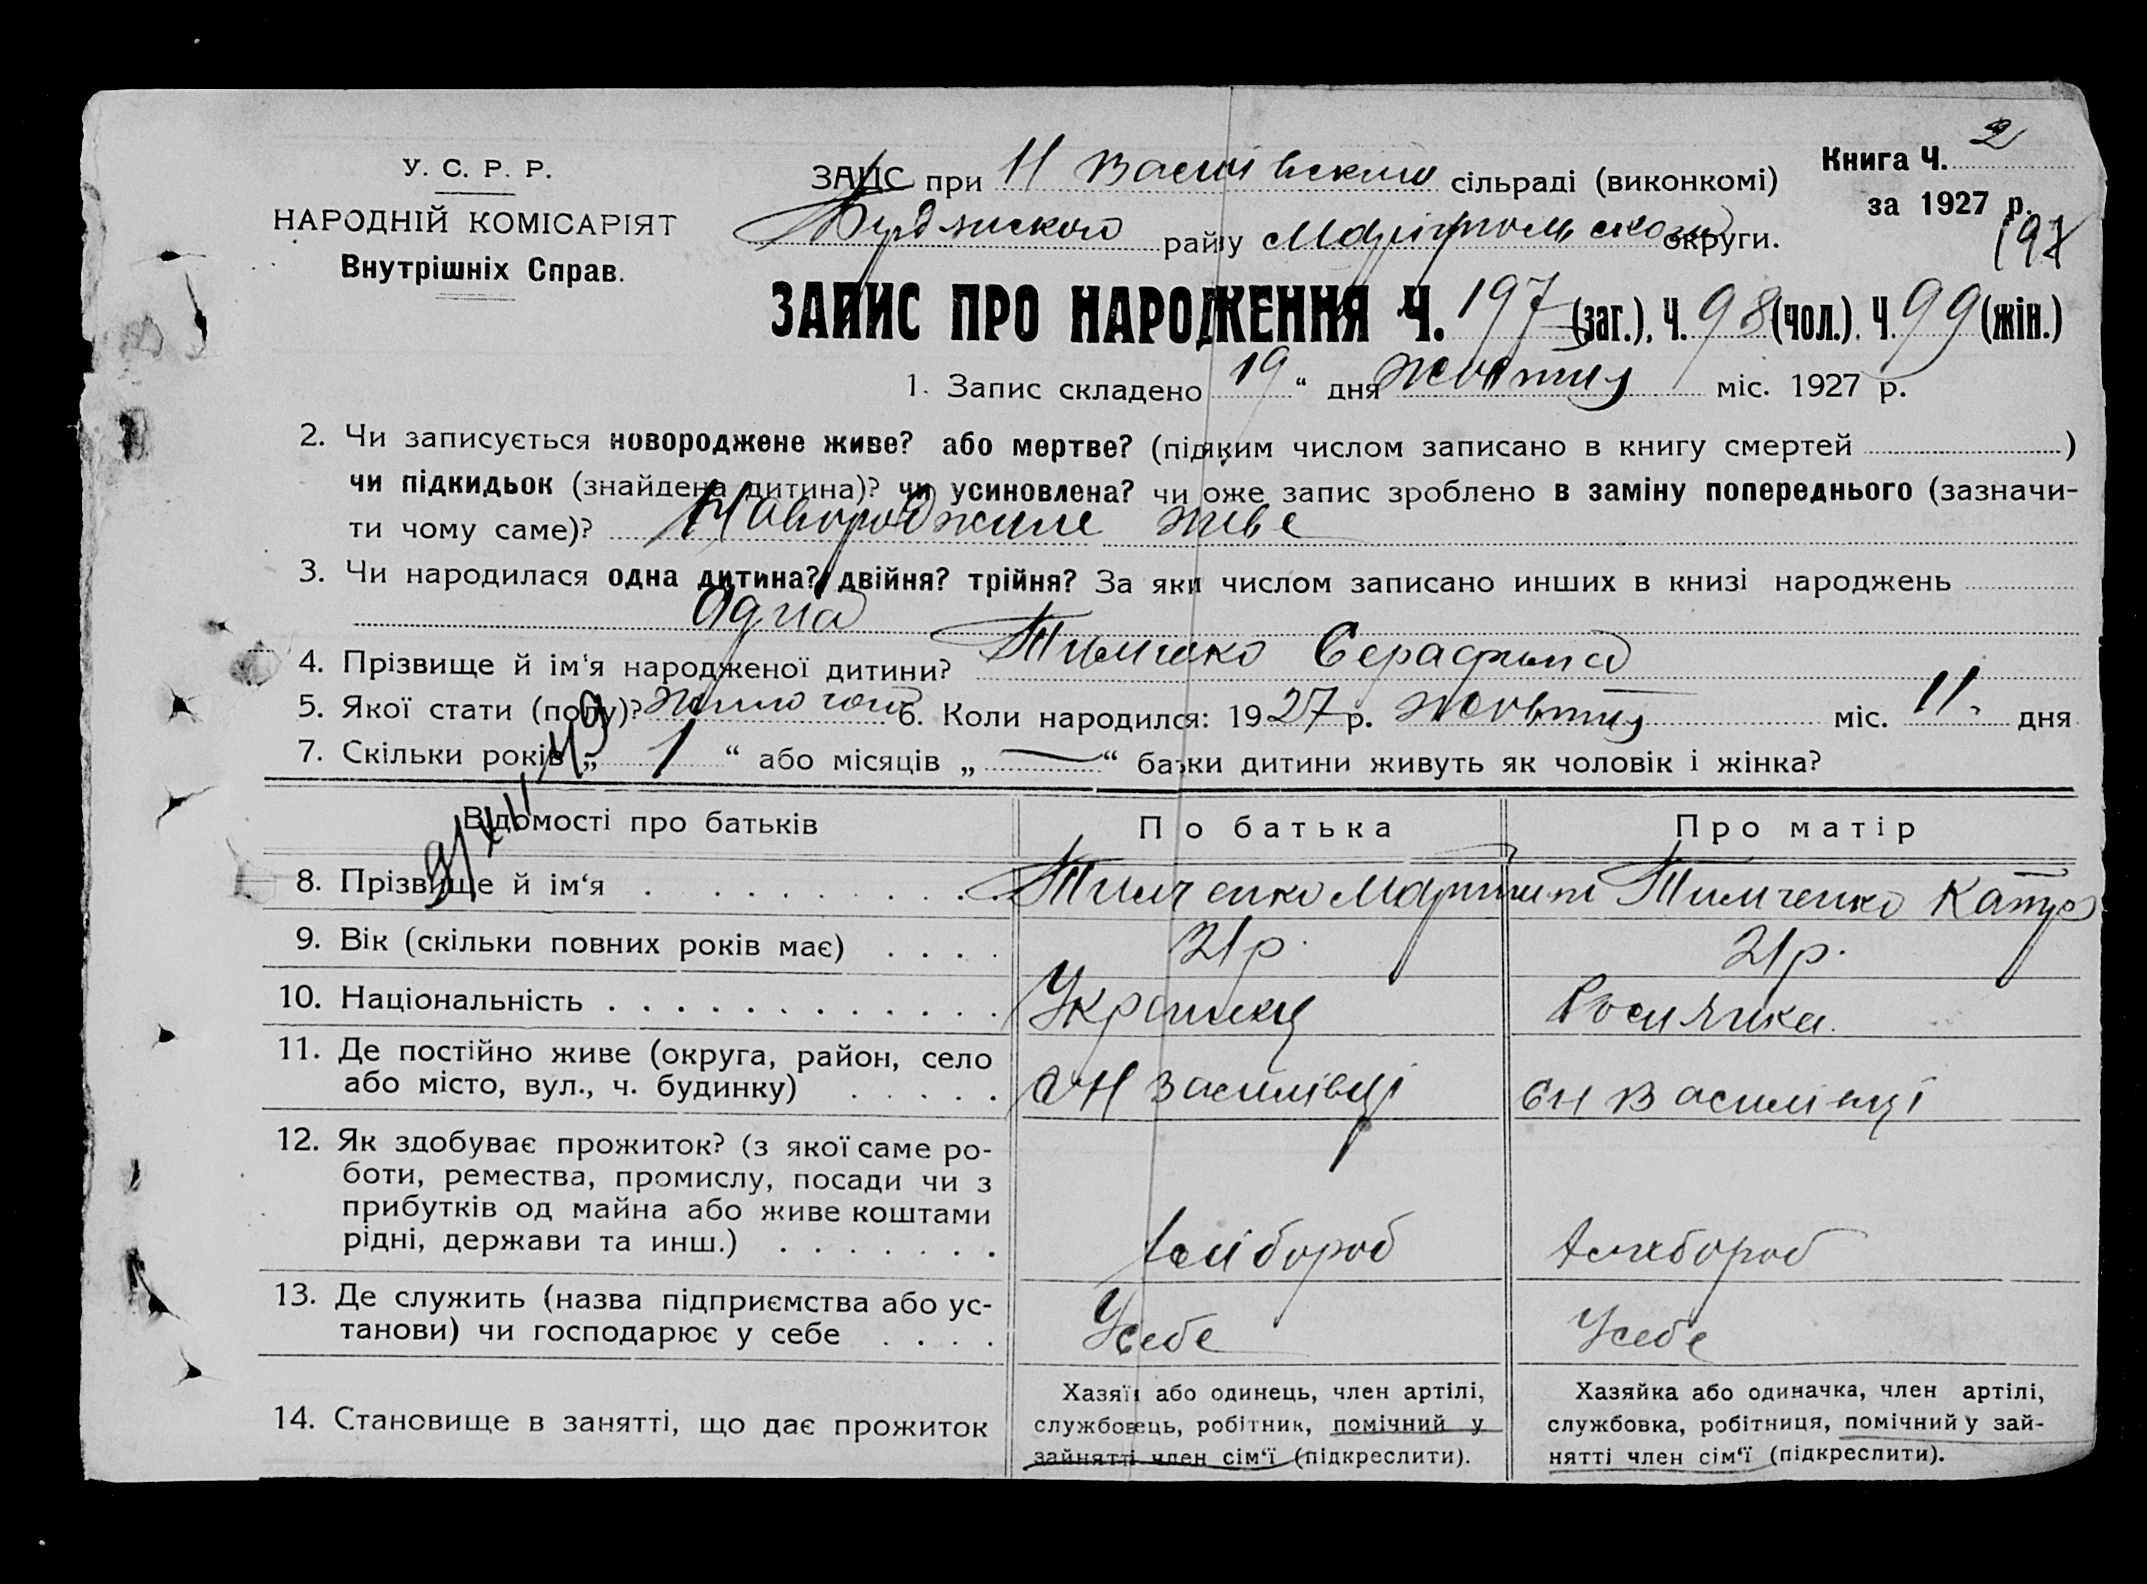 У. С. Р. Р.
НАРОДНІЙ КОМІСАРІЯТ
Внутрішніх Справ.
ЗАЦС при Н Василівский сільраді (виконкомі)
району Маріупольскои округи.
Книга Ч. 2
за 1927 р.
197
ЗАПИС ПРО НАРОДЖЕННЯ Ч. 197 (заг.), Ч. 98 (чол.). Ч. 99 (жін.)
1. Запис складено 19 “ дня жовтня міс. 1927 р.
2. Чи записується новороджене живе? або мертве? (під яким числом записано в книгу смертей )
чи підкидьок (знайдена дитина)? чи усиновлена? чи оже запис зроблено в заміну попереднього (зазначи-
ти чому саме)? Новороджене живе
3. Чи народилася одна дитина? двійня? трійня? За яким числом записано инших в книзі народжень
Одна
4. Прізвище й ім‘я народженої дитини? Тимченко Серафима
5. Якої стати (полу)? жиночоі 6. Коли народився: 1927 р. жовтня міс. 11 дня
7. Скільки років „ 1 “ або місяців „ — “ батьки дитини живуть як чоловік і жінка?
9/XII 49
Відомості про батьків
Про батька
Про матір
8. Прізвище й ім‘я . . . . . . . . Тимченко Мартин Тимченко Катря
9. Вік (скільки повних років має) . . . . 21 р. 21 р.
10. Національність . . . . . . . . . . . . Украінец Росиянка
11. Де постійно живе (округа, район, село
або місто, вул., ч. будинку) . . . . . с Н Василівці с Н Василівці
12. Як здобуває прожиток? (з якої саме ро-
боти, ремества, промислу, посади чи з
прибутків од майна або живе коштами
рідні, держави та инш.) . . . . . . . хлібороб хлібороб
13. Де служить (назва підприємства або ус-
танови) чи господарює у себе . . . . У себе У себе
14. Становище в занятті, що дає прожиток
Хазяїн або одинець, член артілі,
службовець, робітник, помічний у
зайнятті член сім‘ї (підкреслити).
Хазяйка або одиначка, член артілі,
службовка, робітниця, помічний у зай-
нятті член сім‘ї (підкреслити).